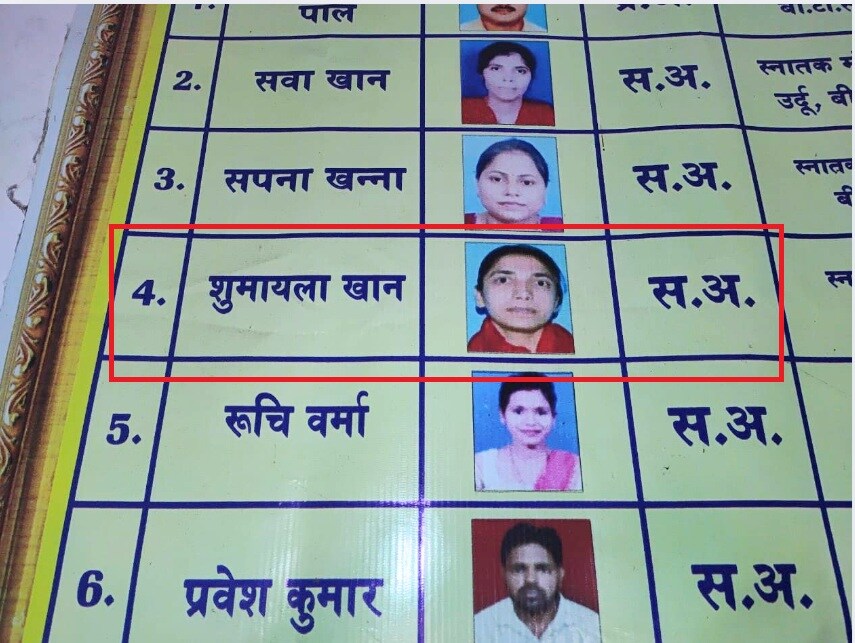 1.
पाल
2. सवा खान स.अ. स्नातक
उर्दू, बी
3. सपना खन्ना स.अ. स्नातक
बी
4. शुमायला खान स.अ. स्न
5. रूचि वर्मा स.अ.
6. प्रवेश कुमार स.अ.